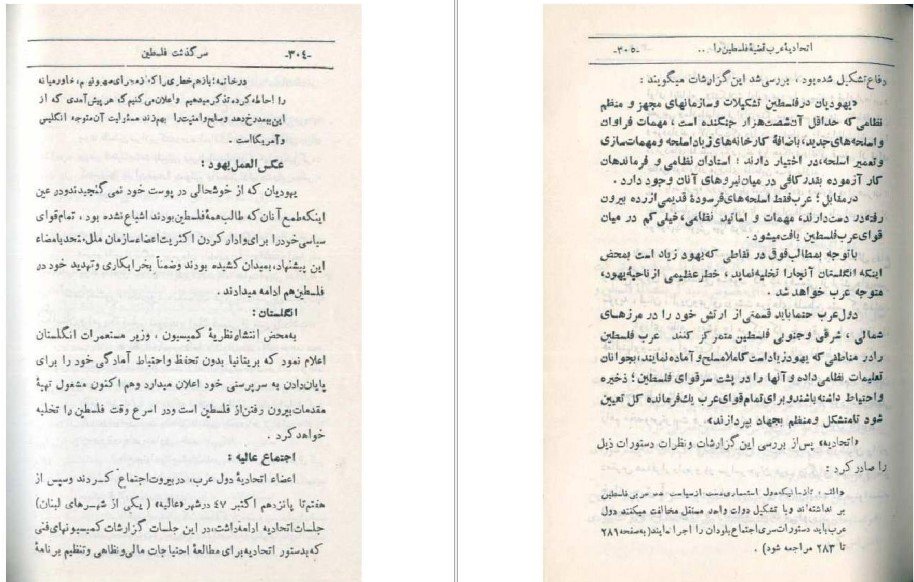 -۳۰٤- سرگذشت فلسطین
در خاتمه؛ بازهم خطری را که از مجرای صهیونیهم، خاورمیانه
را احاطه کرده، تذکر میدهیم و اعلان می‌کنیم که هر پیش‌آمدی که از
این ببعد رخ دهد و سلم و امنیت را بهم زند مسئولیت آن متوجه انگلیس
و آمریکا است .
عکس العمل یهود :
یهودیان که از خوشحالی در پوست خود نمی گنجیدند و در عین
اینکه طمع آنان که طالب همهٔ فلسطین بودند اشباع نشده بود ، تمام قوای
سیاسی خود را برای وادار کردن اکثریت اعضاء سازمان ملل متحد بامضاء
این پیشنهاد، بمیدان کشیده بودند و ضمناً بخرابکاری و تهدید خود در
فلسطین هم ادامه میدادند .
انگلستان :
به‌محض انتشار نظریهٔ کمیسیون ، وزیر مستعمرات انگلستان
اعلام نمود که بریتانیا بدون تحفظ واحتیاط آمادگی خود را برای
پایان‌دادن به سرپرستی خود اعلان میدارد وهم اکنون مشغول تهیهٔ
مقدمات بیرون رفتن از فلسطین است ودر اسرع وقت فلسطین را تخلیه
خواهد کرد .
اجتماع عالیه :
اعضاء اتحادیهٔ دول عرب، در بیروت اجتماع کردند و سپس از
هفتم تا پانزدهم اکتبر ٤٧ در شهر «عالیه» ( یکی از شهرهای لبنان)
جلسات اتحادیه ادامه داشت، در این جلسات گزارشات کمیسیونهای فنی
که بدستور اتحادیه برای مطالعهٔ احتیاجات مالی و نظامی و تنظیم برنامهٔ
اتحادیهٔ عرب قضیهٔ فلسطین را . . . -۳۰۵-
دفاع تشکیل شده بود ، بررسی شد این گزارشات میگویند :
«یهودیان در فلسطین تشکیلات و سازمانهای مجهز و منظم
نظامی که حداقل آن شصت هزار جنگنده است ، مهمات فراوان
و اسلحه‌های جدید، باضافهٔ کارخانه‌های زیاد اسلحه و مهمات سازی
و تعمیر اسلحه، در اختیار دارند ؛ استادان نظامی و فرماندهان
کار آزموده بقدر کافی در میان نیروهای آنان وجود دارد .
در مقابل ؛ عرب فقط اسلحه‌های فرسودهٔ قدیمی از رده بیرون
رفته در دست دارند، مهمات و اساتید نظامی، خیلی کم در میان
قوای عرب فلسطین یافت میشود .
با توجه بمطالب فوق در نقاطی که یهود زیاد است بمحض
اینکه انگلستان آنجا را تخلیه نماید ، خطر عظیمی از ناحیهٔ یهود،
متوجه عرب خواهد شد .
دول عرب حتما باید قسمتی از ارتش خود را در مرزهای
شمالی ، شرقی و جنوبی فلسطین متمرکز کنند عرب فلسطین
را در مناطقی که یهود زیاد است کاملا مسلح و آماده نمایند، بجوانان
تعلیمات نظامی داده و آنها را در پشت سر قوای فلسطین ؛ ذخیره
و احتیاط داشته باشند و برای تمام قوای عرب یك فرمانده کل تعیین
شود تا متشکل و منظم بجهاد بپردازند».
«اتحادیه» پس از بررسی این گزارشات و نظرات دستورات ذیل
را صادر کرد :
«الف ، تا زمانیکه دول استعماری دست از سیاست ضد عربی فلسطین
بر نداشته‌اند و با تشکیل دولت واحد مستقل مخالفت میکنند دول
عرب باید دستورات سری اجتماع بلودان را اجرا نمایند (به صفحه ۲۸۱
تا ۲۸۳ مراجعه شود) .